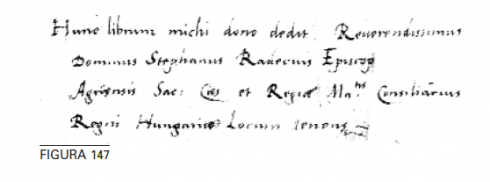 Hunc librum michi dono dedit Reuerendissimus
Dominus Stephanus Radecius Episcop
Agriensis Sac: Cęs et Regiæ Ma^tis Consiliarius
Regni Hungariæ Locum tenens
FIGURA 147